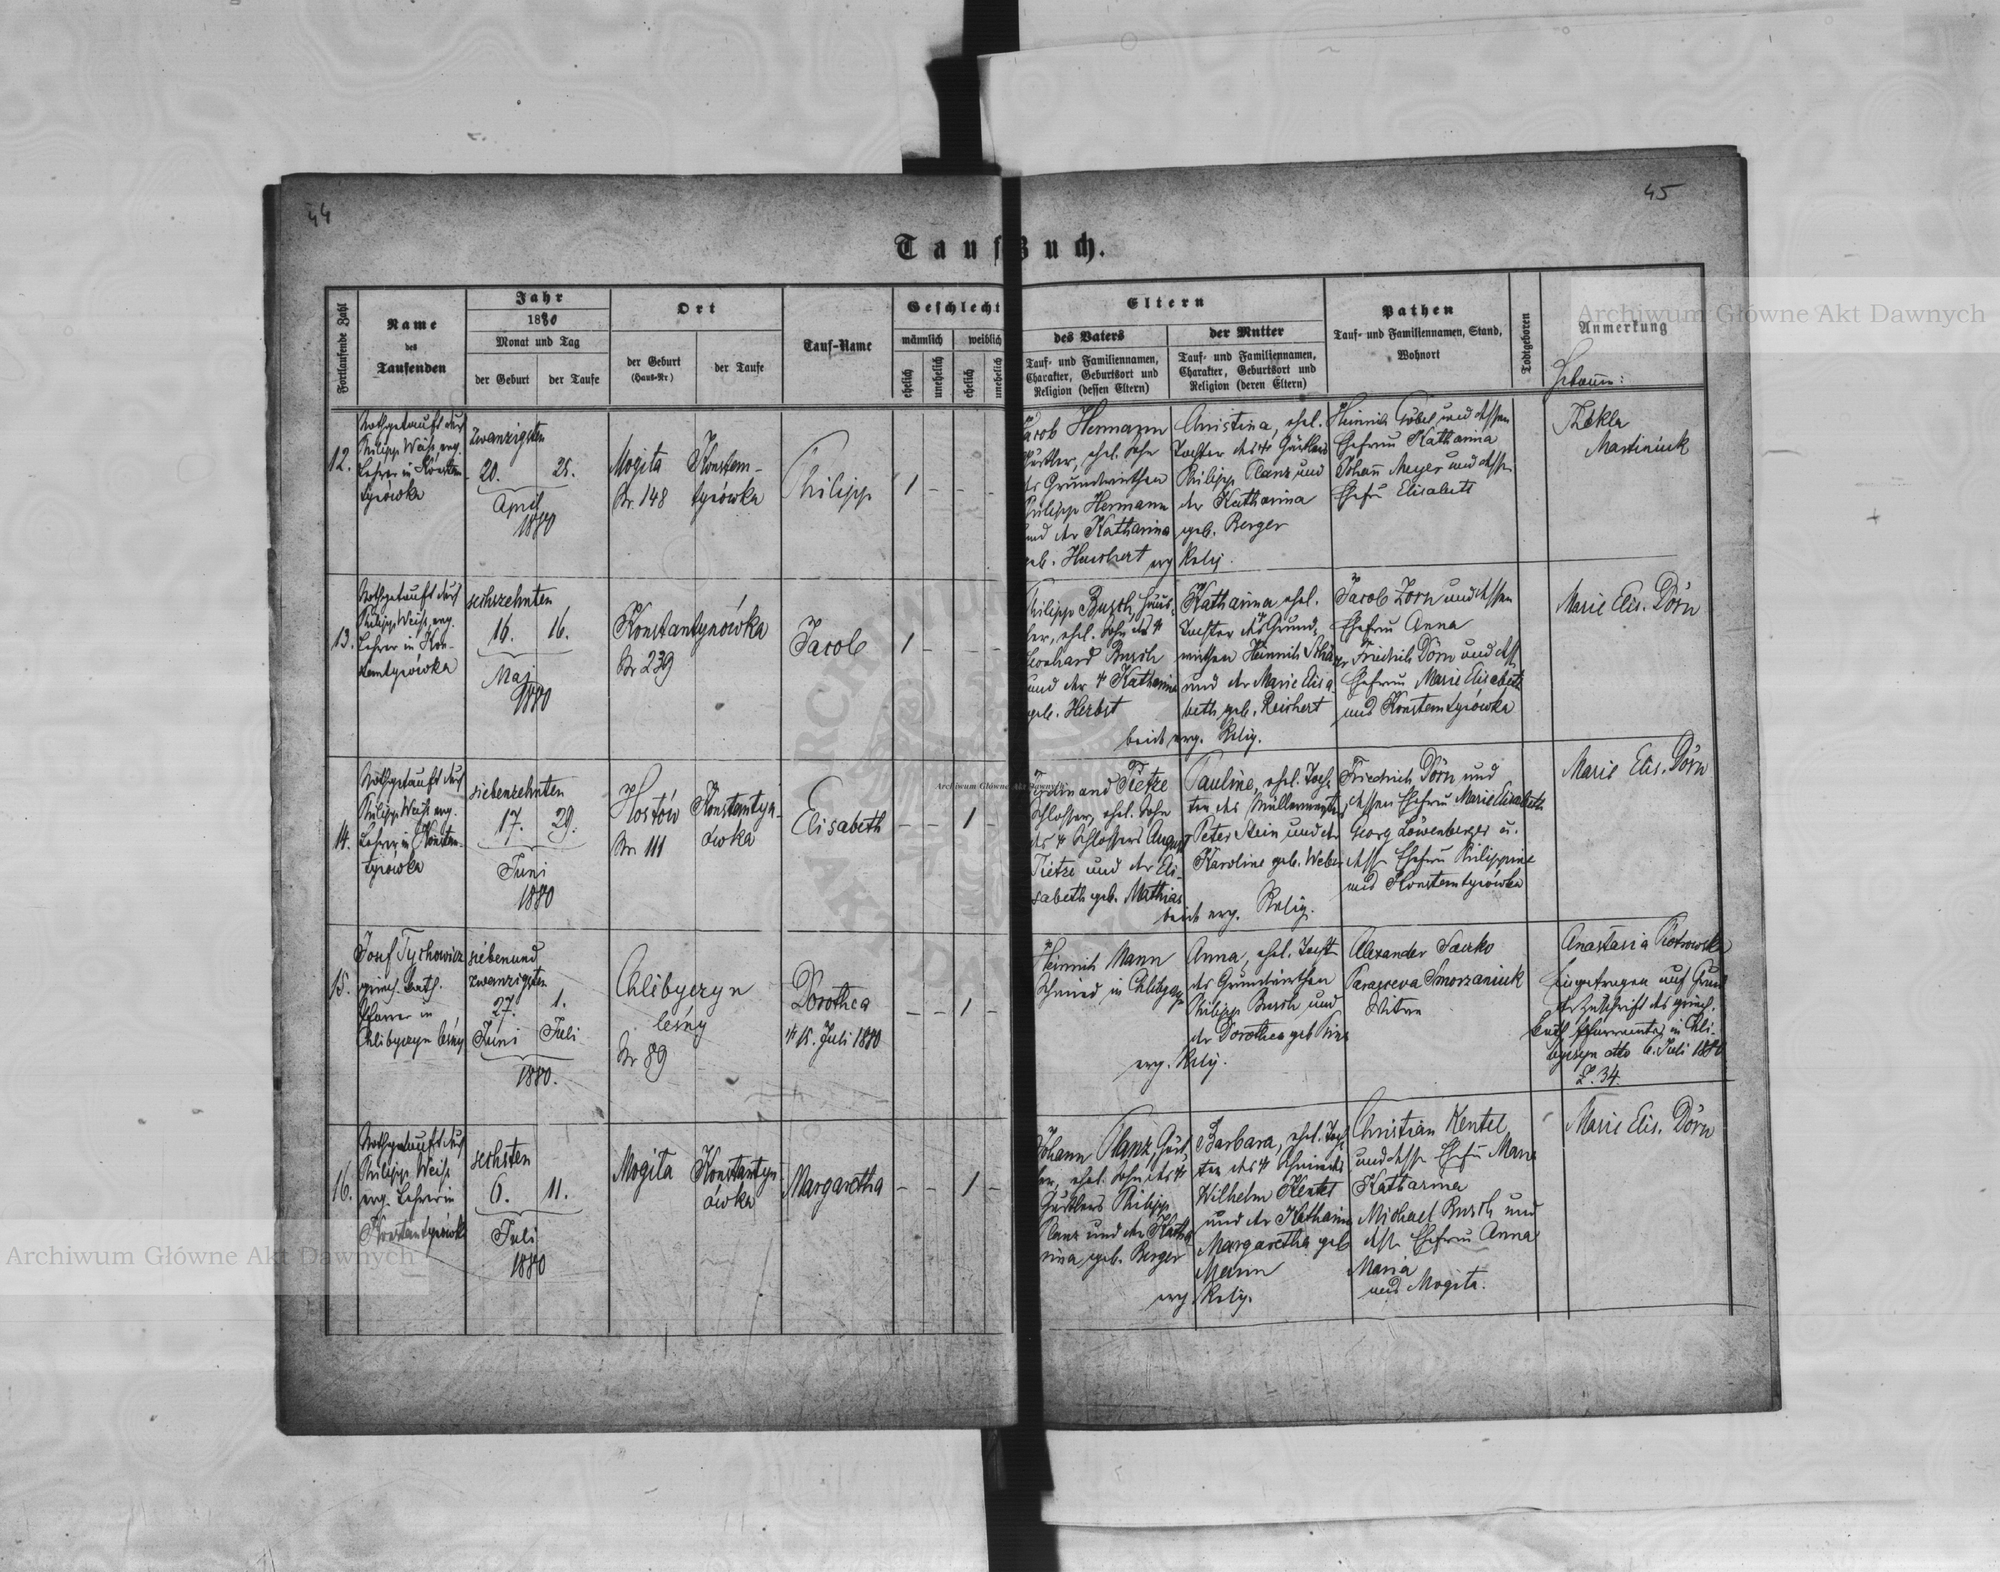 44
45
TaufBuch.
Fortlaufende Zahl
Name
des
Taufenden
Jahr
1880
Monat und Tag
der Geburt
der Taufe
Ort
der Geburt
(Haus-Nr.)
der Taufe
Tauf-Name
Geschlecht
männlich
weiblich
ehelich
unehelich
ehelich
unehelich
Eltern
des Vaters
Tauf- und Familiennamen,
Charakter, Geburtsort und
Religion (dessen Eltern)
der Mutter
Tauf- und Familiennamen,
Charakter, Geburtsort und
Religion (deren Eltern)
Pathen
Tauf- und Familiennamen, Stand,
Wohnort
Todtgeboren
Anmerkung
12.
Nothgetauft durch
Philipp Weiss, evg.
Lehrer in Konstan-
tynówka
zwanzigsten
20. 25.
April
1880
Mogiła
Nr. 148
Konstan-
tynówka
Philipp
1 - - -
Jacob Hermann
Gürtler, ehel. Sohn
des Grundwirthen
Philipp Hermann
und der Katharina
geb.
Christina, ehel.
Tochter des † Gürtlers
Philipp Planz und
der Katharina
geb. Berger
evg. Relig.
Heinrich Göbel und dessen
Ehefrau Katharina
Johann Meyer und dessen
Ehefr. Elisabeth
Thekla
Martiniuk
13.
Nothgetauft durch
Philipp Weiss, evg.
Lehrer in Kon-
stantynówka
sechszehnten
16. 16.
Mai
1880
Konstantynówka
Nr 239
Jacob
1 - - -
Philipp Busch, Häus-
ler, ehel. Sohn des †
Leonhard Busch
und der † Katharina
geb. Herbst
Katharina, ehel.
Tochter des Grund-
wirthen Heinrich
und der Marie Elisa-
beth, geb. Reichert
beide evg. Relig.
Jacob Zorn und dessen
Ehefrau Anna
Friedrich Dörn und dess.
Ehefrau Marie Elisabeth
aus Konstantynówka
Marie Elis. Dörn
14.
Nothgetauft durch
Philipp Weiss, evg.
Lehrer in Konstan-
tynówka
siebenzehnten
17. 29.
Juni
1880
Hostów
Nr 111
Konstantyn-
ówka
Elisabeth
- - 1 -
Ferdinand Tietze
Schlosser, ehel. Sohn
des † Schlossers August
Tietze und der Eli-
sabeth geb. Mathias
Pauline, ehel. Toch-
ter des Müllermeisters
Peter Stein und der
Karoline geb. Weber
beide evg. Relig.
Friedrich Dörn und
dessen Ehefrau Marie Elisabeth
Georg Löwenberger u.
dess. Ehefrau Philippine
aus Konstantynówka
Marie Elis. Dörn
15.
Josef Tychowicz
griech. kath.
Pfarrer in
Chlibyczyn leśny
siebenund
zwanzigsten
27. 1.
Juni Juli
1880.
Chlibyczyn
leśny
Nr 89
Dorothea
† 15. Juli 1880
- - 1 -
Heinrich Mann
Schmied in Chlibyczyn
Anna, ehel. Tocht.
des Grundwirthen
Philipp Busch und
der Dorothea geb.
evg. Relig.
Alexander
Paraszewa Smorzaniuk
Anastasia Piotrowska
Eingetragen auf Grund
der Zuschrift des griech.
kath. Pfarramtes in Chli-
byczyn dto 6. Juli 1880
Z. 34.
16.
Nothgetauft durch
Philipp Weiss
evg. Lehrer in
Konstantynówka
sechsten
6. 11.
Juli
1880
Mogiła
Konstantyn
ówka
Margaretha
- - 1 -
Johann Planz, Gürt-
ler, ehel. Sohn des †
Gürtlers Philipp
Planz und der Katha-
rina, geb. Berger
Barbara, ehel. Toch-
ter des † Schmieds
Wilhelm Kentel
und der Katharina
Margaretha geb.
Mann
evg. Relig.
Christian Kentel
und dess. Ehefr. Marie
Katharina
Michael Busch und
dess. Ehefrau Anna
Maria
aus Mogiła.
Marie Elis. Dörn
Archiwum Główne Akt Dawnych
Archiwum Główne Akt Dawnych
Archiwum Główne Akt Dawnych